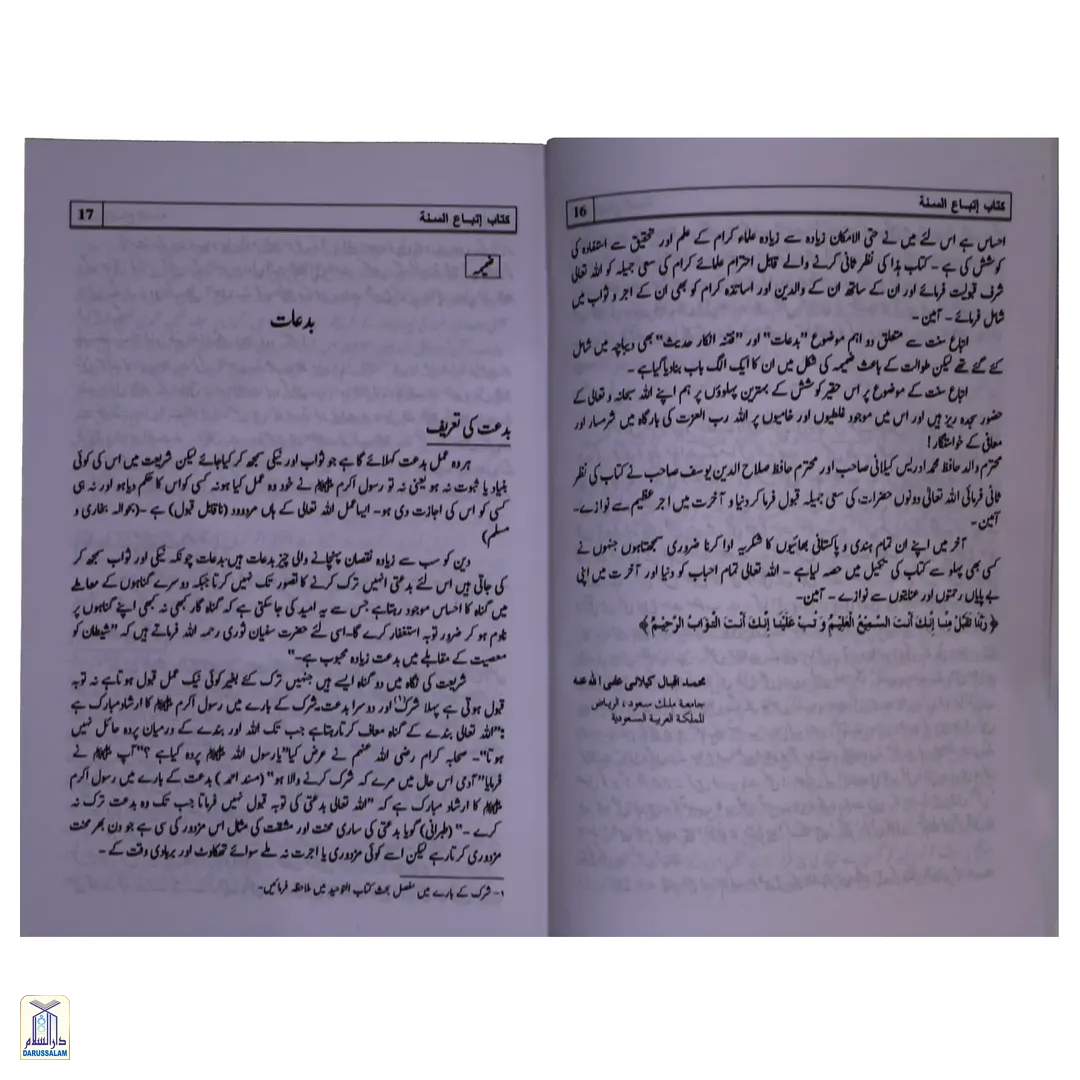 كتاب إتباع السنة
16
احساس ہے اس لئے میں نے حتی الامکان زیادہ سے زیادہ علماء کرام کے علم اور تحقیق سے استفادہ کی
کوشش کی ہے - کتاب ہذا کی نظر ثانی کرنے والے قابل احترام علمائے کرام کی سعی جمیلہ کو اللہ تعالٰی
شرف قبولیت فرمائے اور ان کے ساتھ ان کے والدین اور اساتذہ کرام کو بھی ان کے اجر و ثواب میں
شامل فرمائے - آمین -
اتباع سنت سے متعلق دو اہم موضوع "بدعات" اور "فتنہ انکار حدیث" بھی دیباچہ میں شامل
کئے گئے تھے لیکن طوالت کے باعث ضمیمہ کی شکل میں ان کا ایک الگ باب بنا دیا گیا ہے -
اتباع سنت کے موضوع پر اس حقیر کوشش کے بہترین پہلوؤں پر ہم اپنے اللہ سبحانہ و تعالٰی کے
حضور سجدہ ریز ہیں اور اس میں موجود غلطیوں اور خامیوں پر اللہ رب العزت کی بارگاہ میں شرمسار اور
معافی کے خواستگار !
محترم والد حافظ محمد ادریس کیلانی صاحب اور محترم حافظ صلاح الدین یوسف صاحب نے کتاب کی نظر
ثانی فرمائی اللہ تعالٰی دونوں حضرات کی سعی جمیلہ قبول فرما کر دنیا و آخرت میں اجر عظیم سے نوازے-
آمین -
آخر میں اپنے ان تمام ہندی و پاکستانی بھائیوں کا شکریہ ادا کرنا ضروری سمجھتا ہوں جنہوں نے
کسی بھی پہلو سے کتاب کی تکمیل میں حصہ لیا ہے - اللہ تعالٰی تمام احباب کو دنیا اور آخرت میں اپنی
بے پایاں رحمتوں اور عنایتوں سے نوازے - آمین-
﴿ رَبَّنَا تَقَبَّلْ مِنَّا إِنَّكَ أَنْتَ السَّمِيْعُ الْعَلِيْمُ وَ تُبْ عَلَيْنَا إِنَّكَ أَنْتَ التَّوَّابُ الرَّحِيْمُ ﴾
محمد اقبال كيلانى عفى الله عنه
جامعة ملك سعود ، الرياض
المملكة العربية السعودية
كتاب إتباع السنة
17
ضمیمہ
بدعات
بدعت کی تعریف
ہر وہ عمل بدعت کہلائے گا جو ثواب اور نیکی سمجھ کر کیا جائے لیکن شریعت میں اس کی کوئی
بنیاد یا ثبوت نہ ہو یعنی نہ تو رسول اکرم ﷺ نے خود وہ عمل کیا ہو نہ کسی کو اس کا حکم دیا ہو اور نہ ہی
کسی کو اس کی اجازت دی ہو- ایسا عمل اللہ تعالٰی کے ہاں مردود (ناقابل قبول) ہے -(بحوالہ بخاری و
مسلم)
دین کو سب سے زیادہ نقصان پہنچانے والی چیز بدعات ہیں-بدعات چونکہ نیکی اور ثواب سمجھ کر
کی جاتی ہیں اس لئے بدعتی انہیں ترک کرنے کا تصور تک نہیں کرتا جبکہ دوسرے گناہوں کے معاملے
میں گناہ کا احساس موجود رہتا ہے جس سے یہ امید کی جا سکتی ہے کہ گناہ گار کبھی نہ کبھی اپنے گناہوں پر
نادم ہو کر ضرور توبہ استغفار کرے گا-اسی لئے حضرت سفیان ثوری رحمہ اللہ فرماتے ہیں کہ "شیطان کو
معصیت کے مقابلے میں بدعت زیادہ محبوب ہے-"
شریعت کی نگاہ میں دو گناہ ایسے ہیں جنہیں ترک کئے بغیر کوئی نیک عمل قبول ہوتا ہے نہ توبہ
قبول ہوتی ہے پہلا شرک۱ اور دوسرا بدعت-شرک کے بارے میں رسول اکرم ﷺ کا ارشاد مبارک ہے
:"اللہ تعالٰی بندے کے گناہ معاف کرتا رہتا ہے جب تک اللہ اور بندے کے درمیان پردہ حائل نہیں
ہوتا"- صحابہ کرام رضی اللہ عنہم نے عرض کیا"یا رسول اللہ ﷺ پردہ کیا ہے ؟"آپ ﷺ نے
فرمایا"آدمی اس حال میں مرے کہ شرک کرنے والا ہو" (مسند احمد ) بدعت کے بارے میں رسول اکرم
ﷺ کا ارشاد مبارک ہے کہ "اللہ تعالٰی بدعتی کی توبہ قبول نہیں فرماتا جب تک وہ بدعت ترک نہ
کرے -" (طبرانی) گویا بدعتی کی ساری محنت اور مشقت کی مثال اس مزدور کی سی ہے جو دن بھر محنت
مزدوری کرتا رہے لیکن اسے کوئی مزدوری یا اجرت نہ ملے سوائے تھکاوٹ اور بربادی وقت کے -
۱- شرک کے بارے میں مفصل بحث کتاب التوحید میں ملاحظہ فرمائیں-
دارالسلام
DARUSSALAM